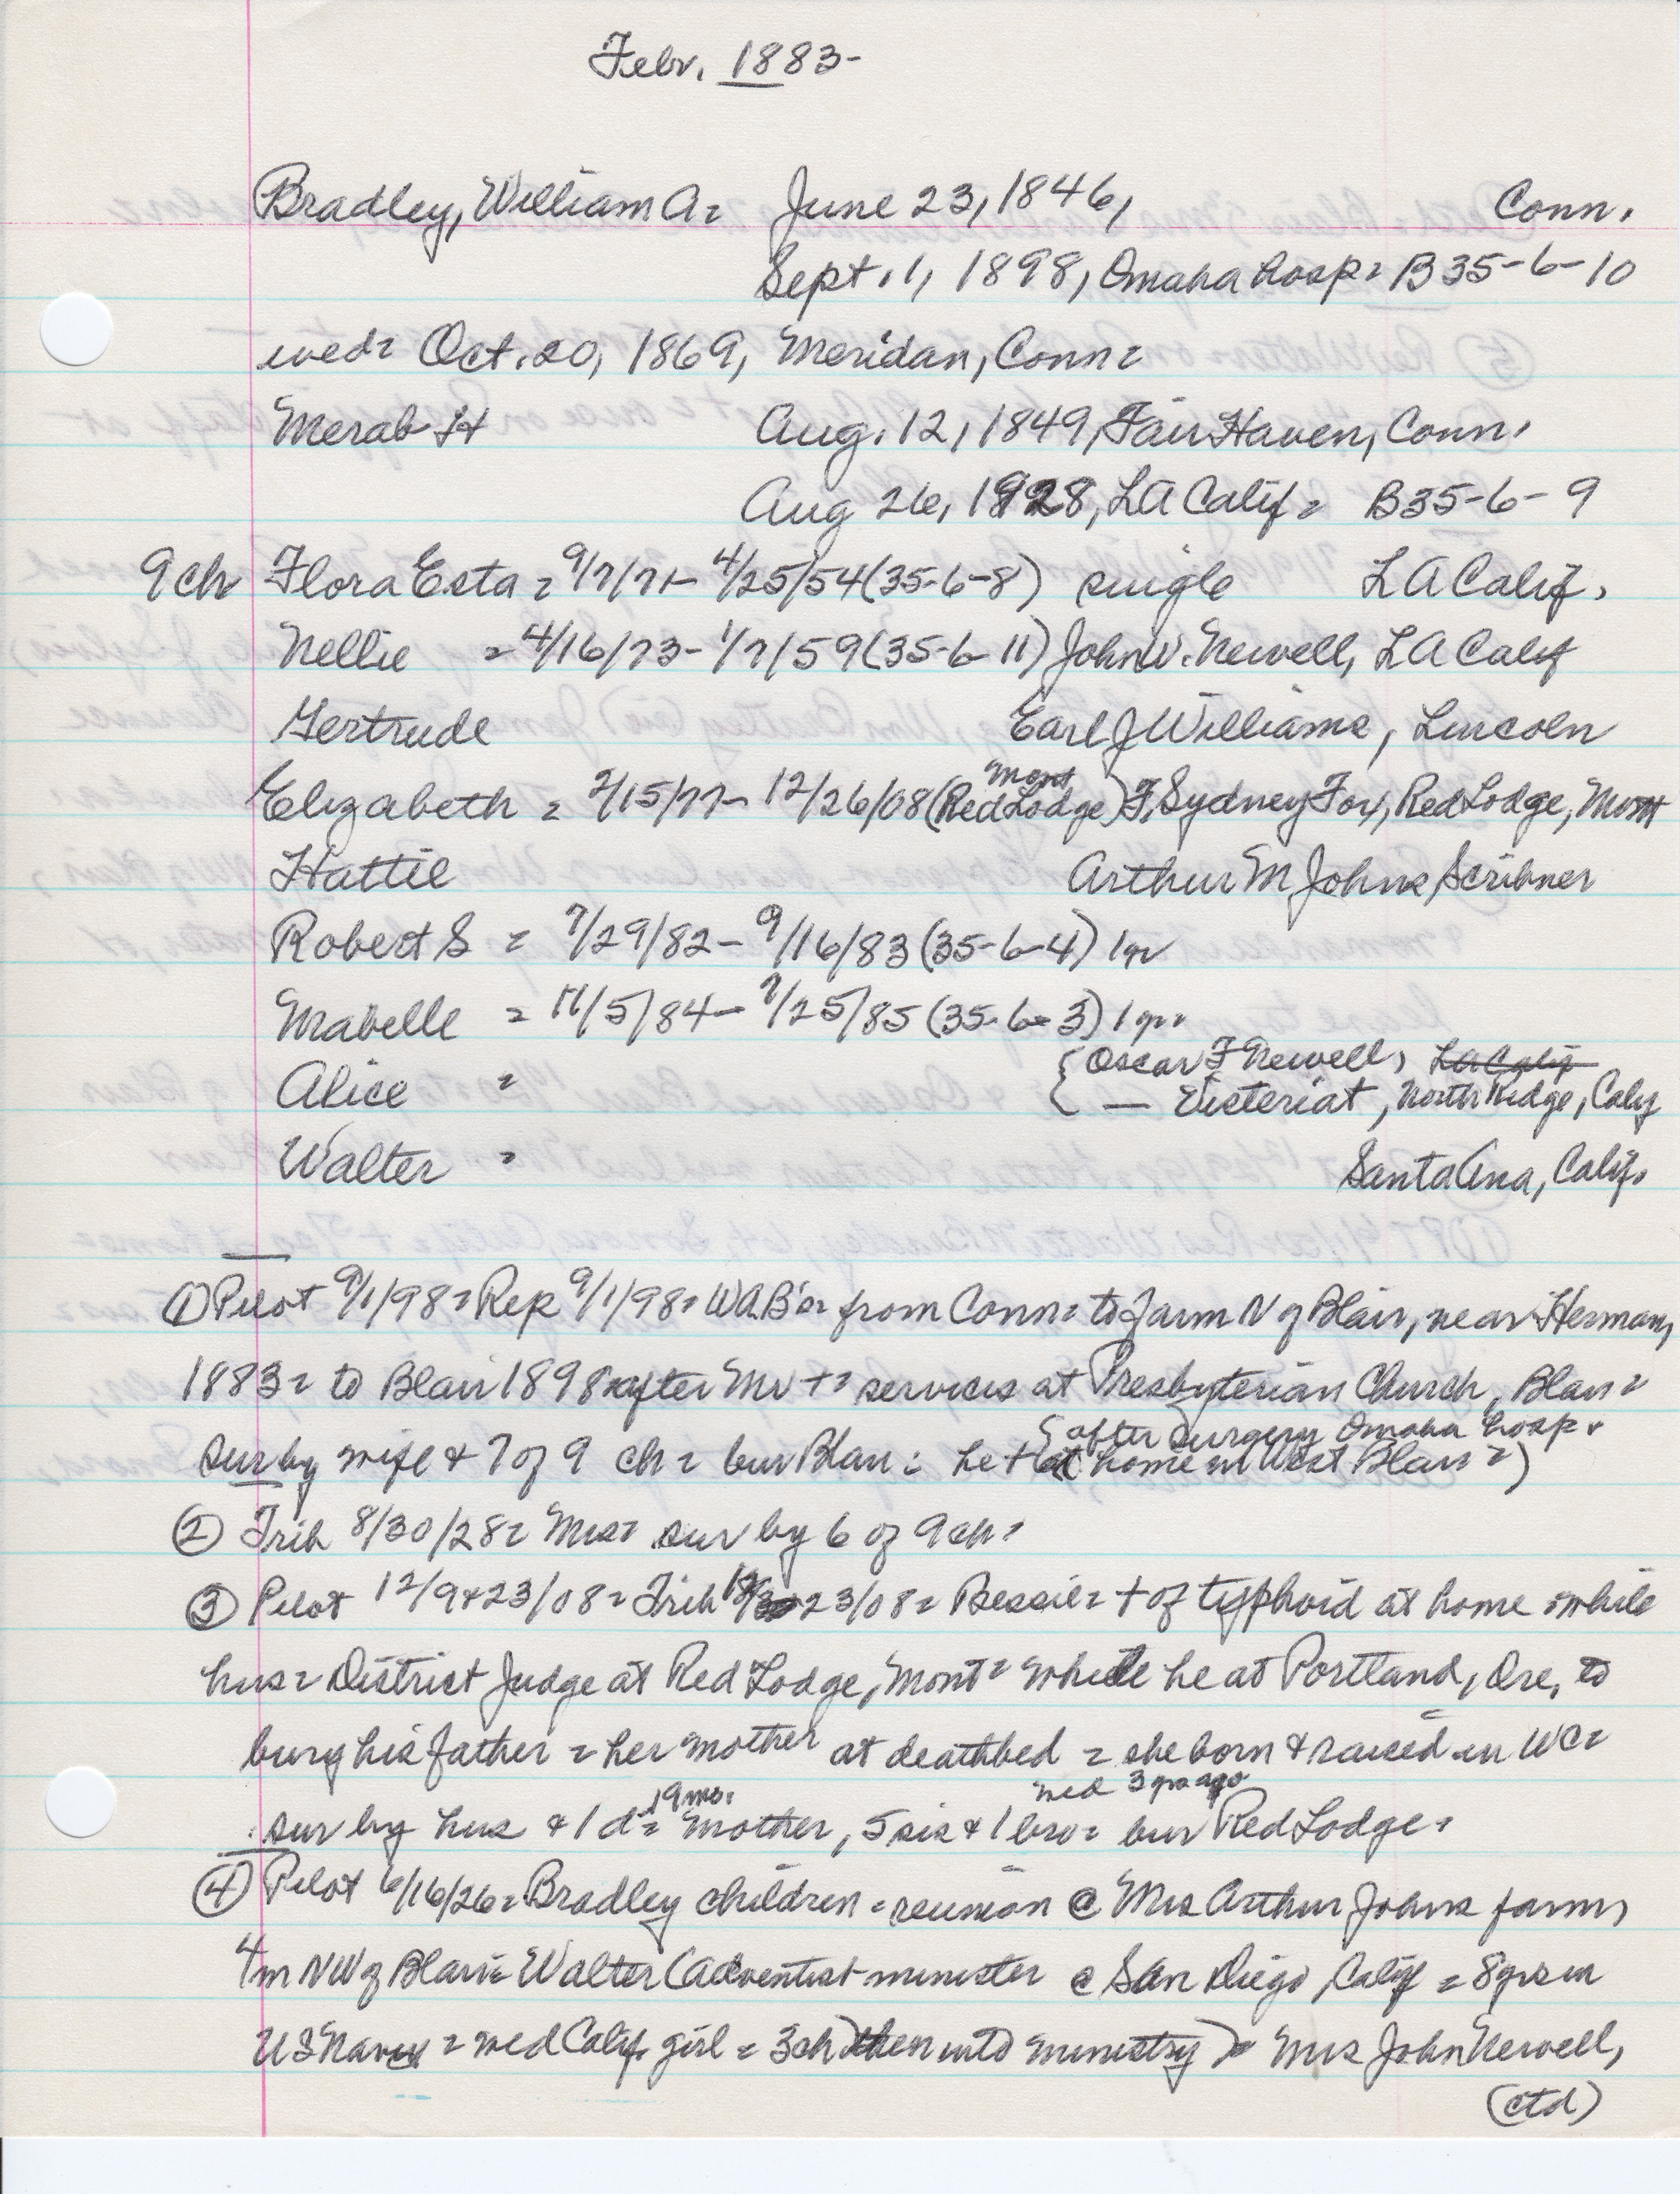 Febr. 1883-
Bradley, William A = June 23, 1846, Conn.
Sept. 1, 1898, Omaha hosp = B35-6-10
wed = Oct. 20, 1869, Meridan, Conn =
Merab H Aug. 12, 1849, Fair Haven, Conn.
Aug 26, 1928, LA Calif = B35-6-9
9ch Flora Esta = 9/7/71- 4/25/54 (35-6-8) single LA Calif.
Nellie = 4/16/73- 1/7/59 (35-6-11) John W. Newell, LA Calif
Gertrude Earl J Williams, Lincoln
Elizabeth = 2/15/77- 12/26/08 (Red Lodge Mont) F. Sydney Fox, Red Lodge, Mont
Hattie Arthur M Johns, Scribner
Robert S = 7/29/82- 9/16/83 (35-6-4) 1 yr
Mabelle = 11/5/84- 7/25/85 (35-6-3) 1 yr.
Alice = { Oscar F Newell, LA Calif
— , North Ridge, Calif
Walter = Santa Ana, Calif.
① Pilot 9/1/98 = Rep 9/1/98 = WAB's = from Conn = to farm N of Blair, near Herman,
1883 = to Blair 1898 after Mr + = services at Presbyterian Church, Blair =
sur by wife & 7 of 9 ch = bur Blair = he + (at home in West Blair =)
{ after surgery Omaha hosp.
② Trib 8/30/28 = Mrs = sur by 6 of 9 ch =
③ Pilot 12/9 & 23/08 = Trib 12/23/08 = Bessie = + of typhoid at home while
hus = District Judge at Red Lodge, Mont = while he at Portland, Ore, to
bury his father = her mother at deathbed = she born & raised in WC =
wed 3 yrs ago
sur by hus & 1 d = 19 mo. mother, 5 sis & 1 bro = bur Red Lodge =
④ Pilot 6/16/26 = Bradley children = reunion @ Mrs Arthur Johns farm,
4 m NW of Blair = Walter (Adventist minister @ San Diego, Calif = 8 yrs in
US Navy = wed Calif. girl = 3 ch) then into ministry) = Mrs John Newell,
(ctd)